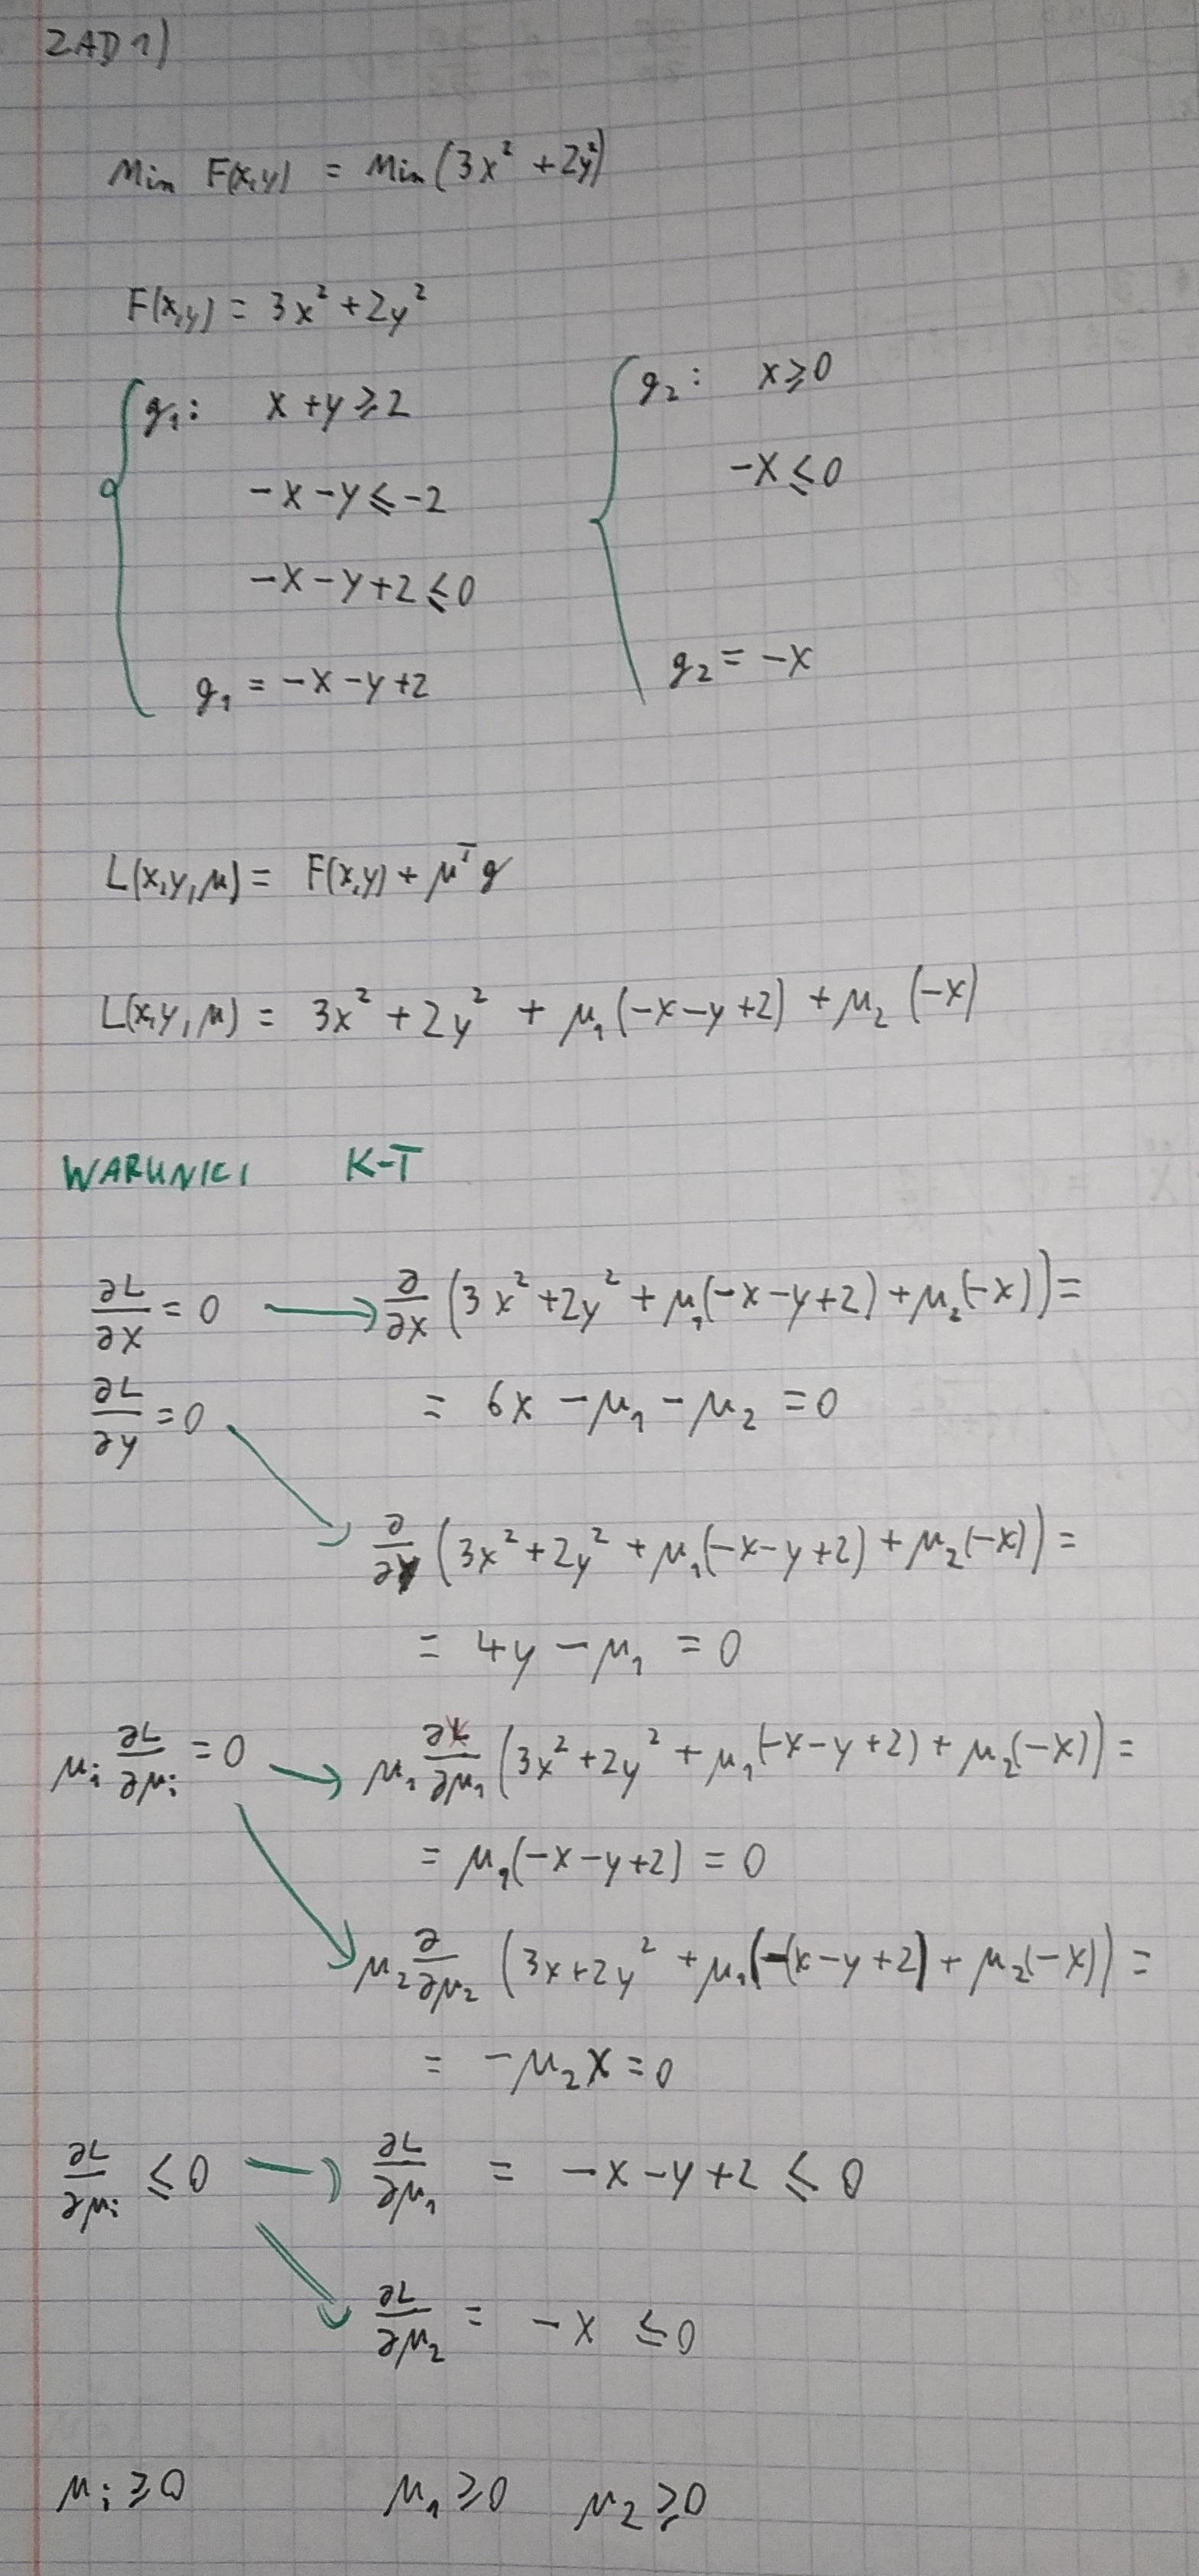 ZAD 1)
Min F(x,y) = Min (3x² + 2y²)
F(x,y) = 3x² + 2y²
g₁: x + y ≥ 2
g₂: x ≥ 0
-x - y ≤ -2
-x ≤ 0
-x - y + 2 ≤ 0
g₁ = -x - y + 2
g₂ = -x
L(x,y,μ) = F(x,y) + μᵀg
L(x,y,μ) = 3x² + 2y² + μ₁(-x-y+2) + μ₂(-x)
WARUNKI K-T
∂L/∂x = 0 → ∂/∂x (3x² + 2y² + μ₁(-x-y+2) + μ₂(-x)) =
∂L/∂y = 0 = 6x - μ₁ - μ₂ = 0
∂/∂y (3x² + 2y² + μ₁(-x-y+2) + μ₂(-x)) =
= 4y - μ₁ = 0
μᵢ ∂L/∂μᵢ = 0 → μ₁ ∂/∂μ₁ (3x² + 2y² + μ₁(-x-y+2) + μ₂(-x)) =
= μ₁(-x-y+2) = 0
μ₂ ∂/∂μ₂ (3x + 2y² + μ₁(-(x-y+2) + μ₂(-x)) =
= -μ₂x = 0
∂L/∂μᵢ ≤ 0 → ∂L/∂μ₁ = -x - y + 2 ≤ 0
∂L/∂μ₂ = -x ≤ 0
μᵢ ≥ 0 μ₁ ≥ 0 μ₂ ≥ 0